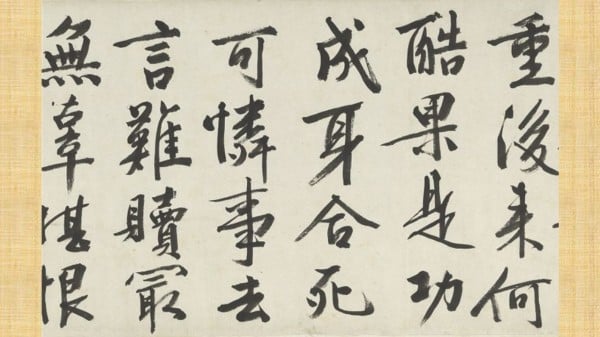 重後来何
酷果是功
成身合死
可憐事去
言難贖最
無辜堪恨